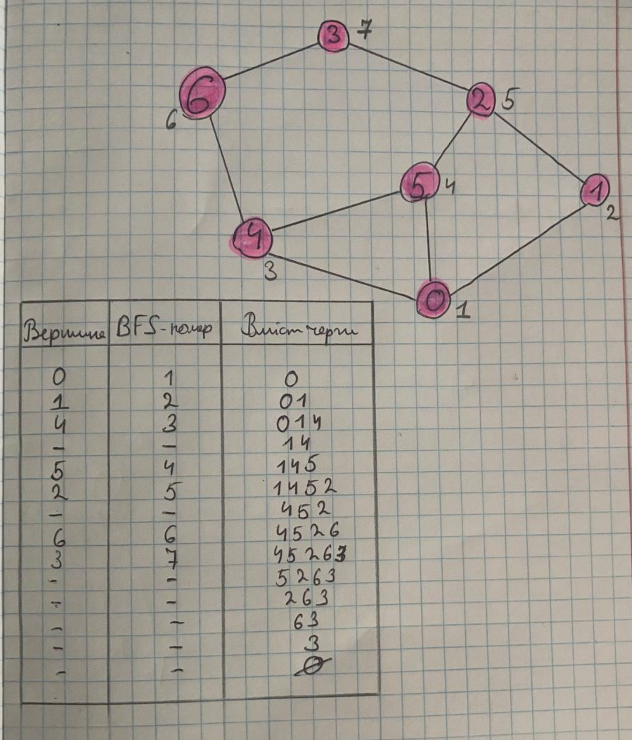 3 7
6
6
2 5
5 4
1
2
4
3
0 1
Вершина BFS-номер Вміст черги
0 1 0
1 2 01
4 3 014
- - 14
5 4 145
2 5 1452
- - 452
6 6 4526
3 7 45263
- - 5263
- - 263
- - 63
- - 3
- - ∅